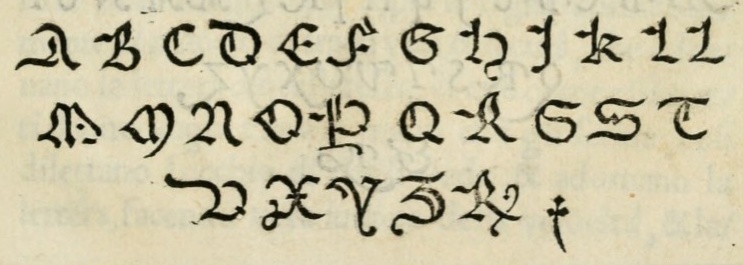 A B C D E F G H J K L L
M M N O P Q R S S T
V X Y Z R